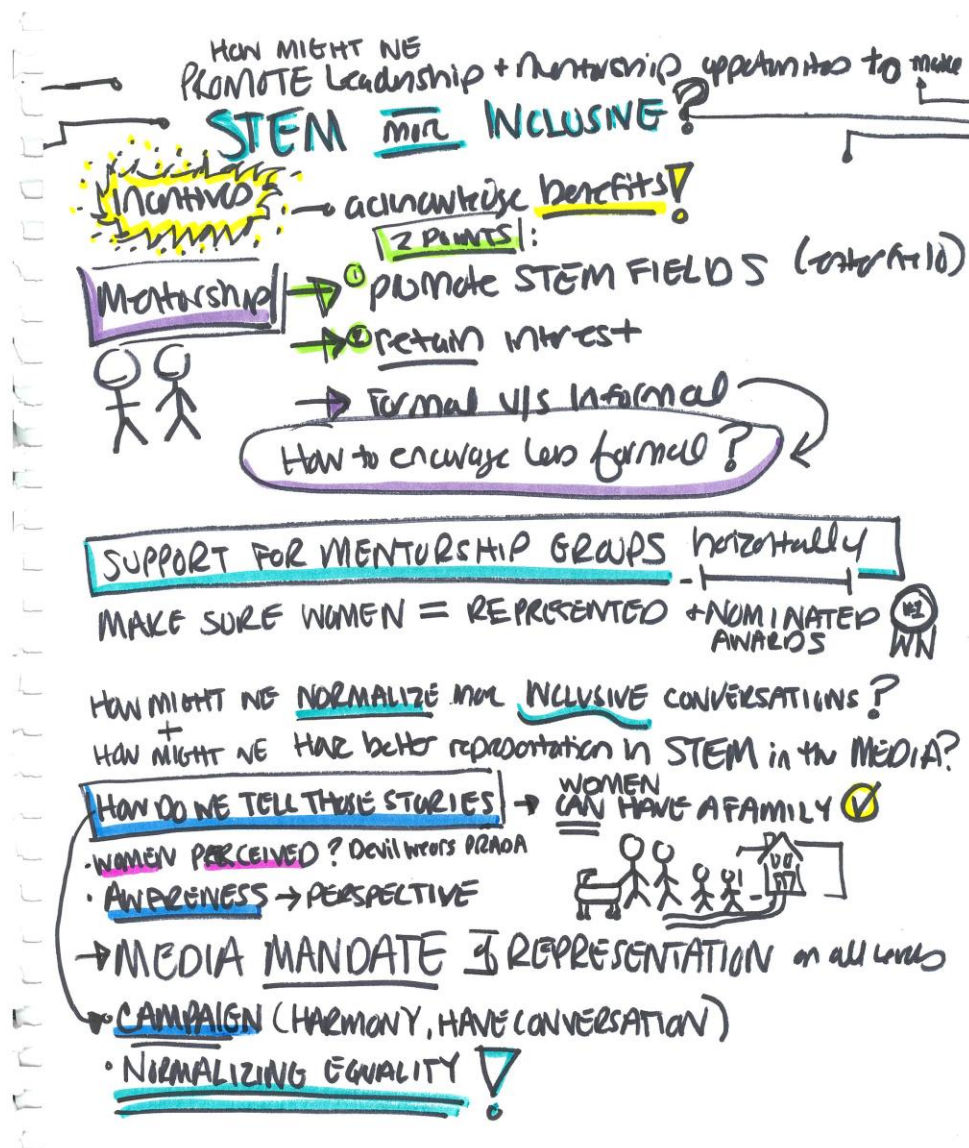 HOW MIGHT WE
PROMOTE Leadership + mentorship oppotunities to make
STEM more INCLUSIVE?
Incentives → acknowledge benefits!
2 POINTS:
Mentorship → ① promote STEM FIELDS (enter field)
→ ② retain intrest
→ Formal v/s Informal
How to encourage less formal?
SUPPORT FOR MENTORSHIP GROUPS - horizontally
MAKE SURE WOMEN = REPRESENTED + NOMINATED
AWARDS
HOW MIGHT WE NORMALIZE more INCLUSIVE CONVERSATIONS?
+
HOW MIGHT WE HAVE better representation in STEM in the MEDIA?
HOW DO WE TELL THOSE STORIES → WOMEN
CAN HAVE A FAMILY
• WOMEN PERCEIVED? Devil wears PRADA
• AWARENESS → PERSPECTIVE
→ MEDIA MANDATE of REPRESENTATION on all levels
CAMPAIGN (HARMONY, HAVE CONVERSATION)
• NORMALIZING EQUALITY!